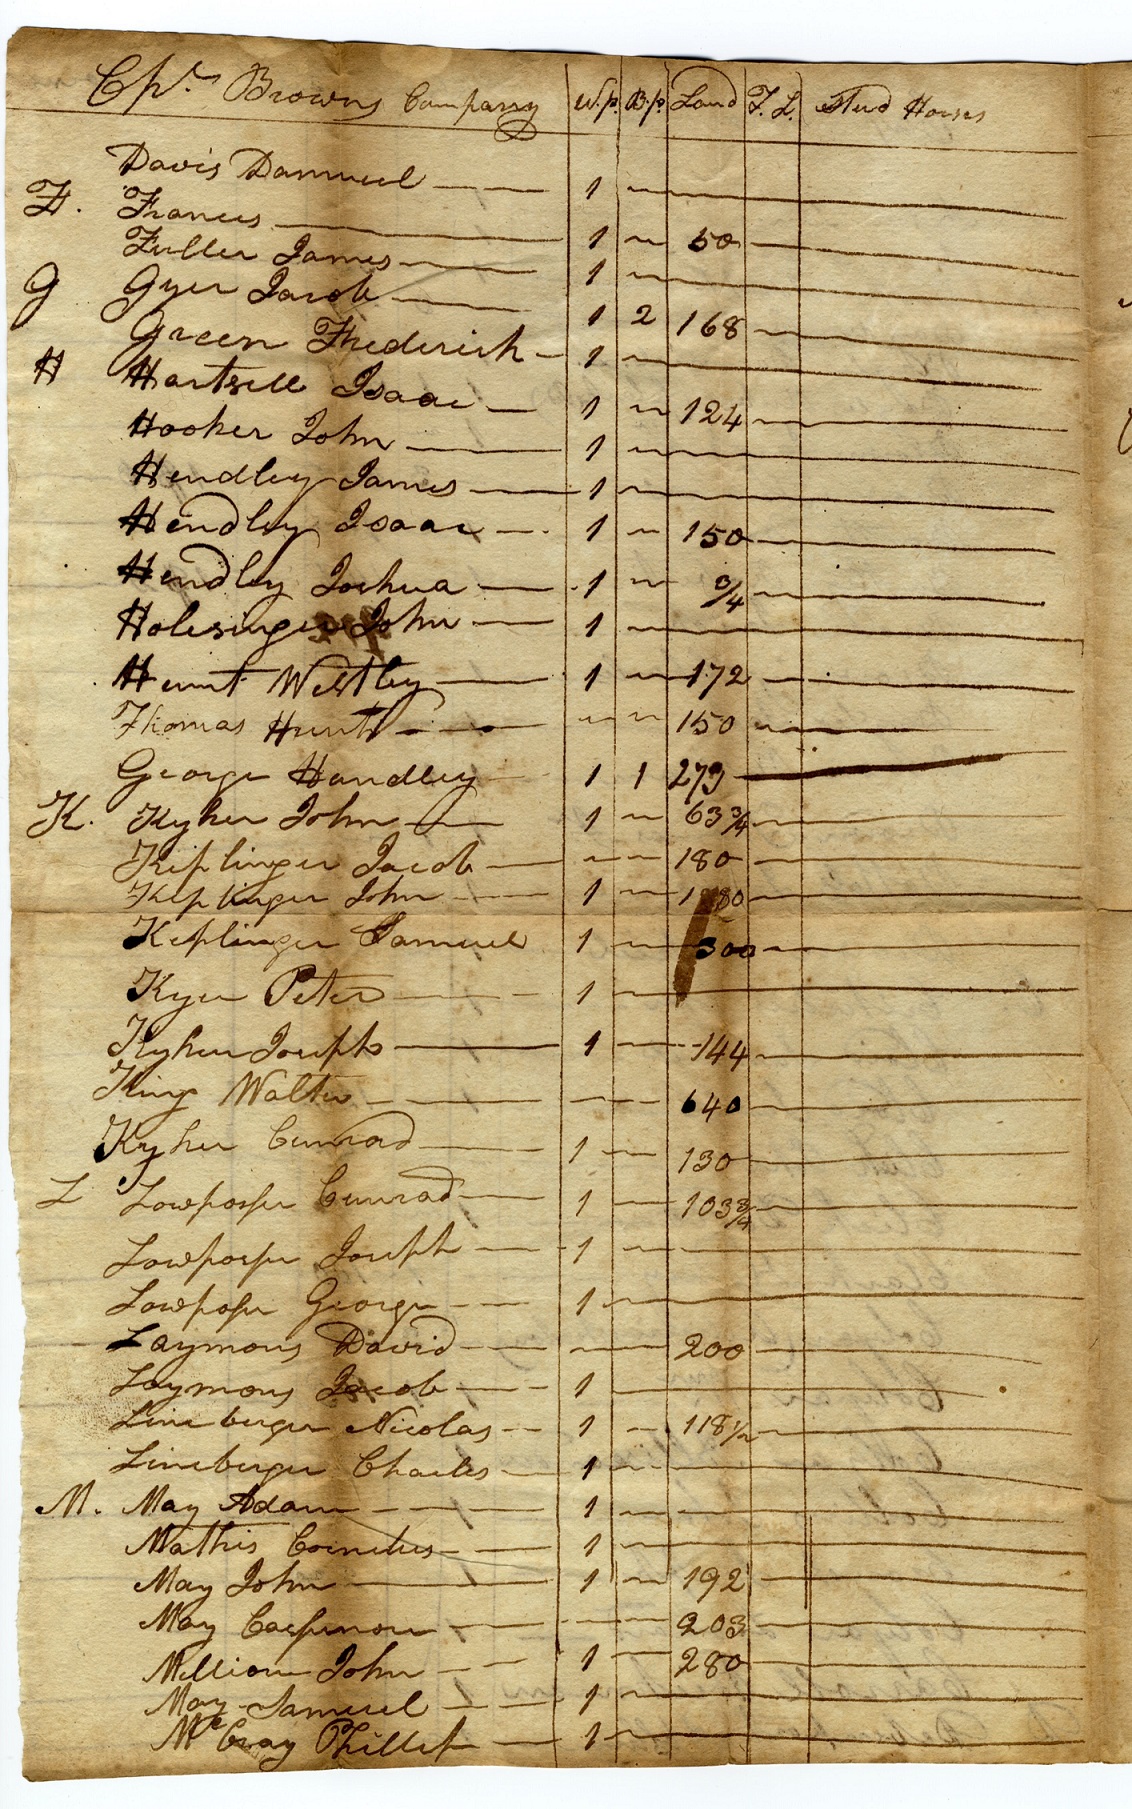 Cpt. Browns Company W.p. B.p. Land T. L. Stud Horses
Davis Damuel 1
F. Frances 1 50
Fuller James 1
G Gyer Jacob 1 2 168
Green Frederick 1
H Hartsell Isaac 1 124
Hooker John 1
Hendley James 1
Hendley Isaac 1 150
Hendley Joshua 1 3/4
Holesinger John 1
Hunt Westley 1 172
Thomas Hunt 150
George Handley 1 1 279
K. Kyker John 1 63 3/4
Kiplinger Jacob 180
Keplinger John 1 180
Keplinger Samuel 1 300
Kyer Peter 1
Kyker Joseph 1 144
King Walter 640
Kyker Cunrad 1 130
L Lowposser Cunrad 1 103 3/4
Lowposser Joseph 1
Lowposser George 1
Laymons David 200
Laymons Jacob 1
Lineberger Nicolas 1 118 1/2
Lineberger Charles 1
M. May Adam 1
Mathis Cornelus 1
May John 1 192
May 203
Million John 1 280
May Samuel 1
McCray Phillip 1